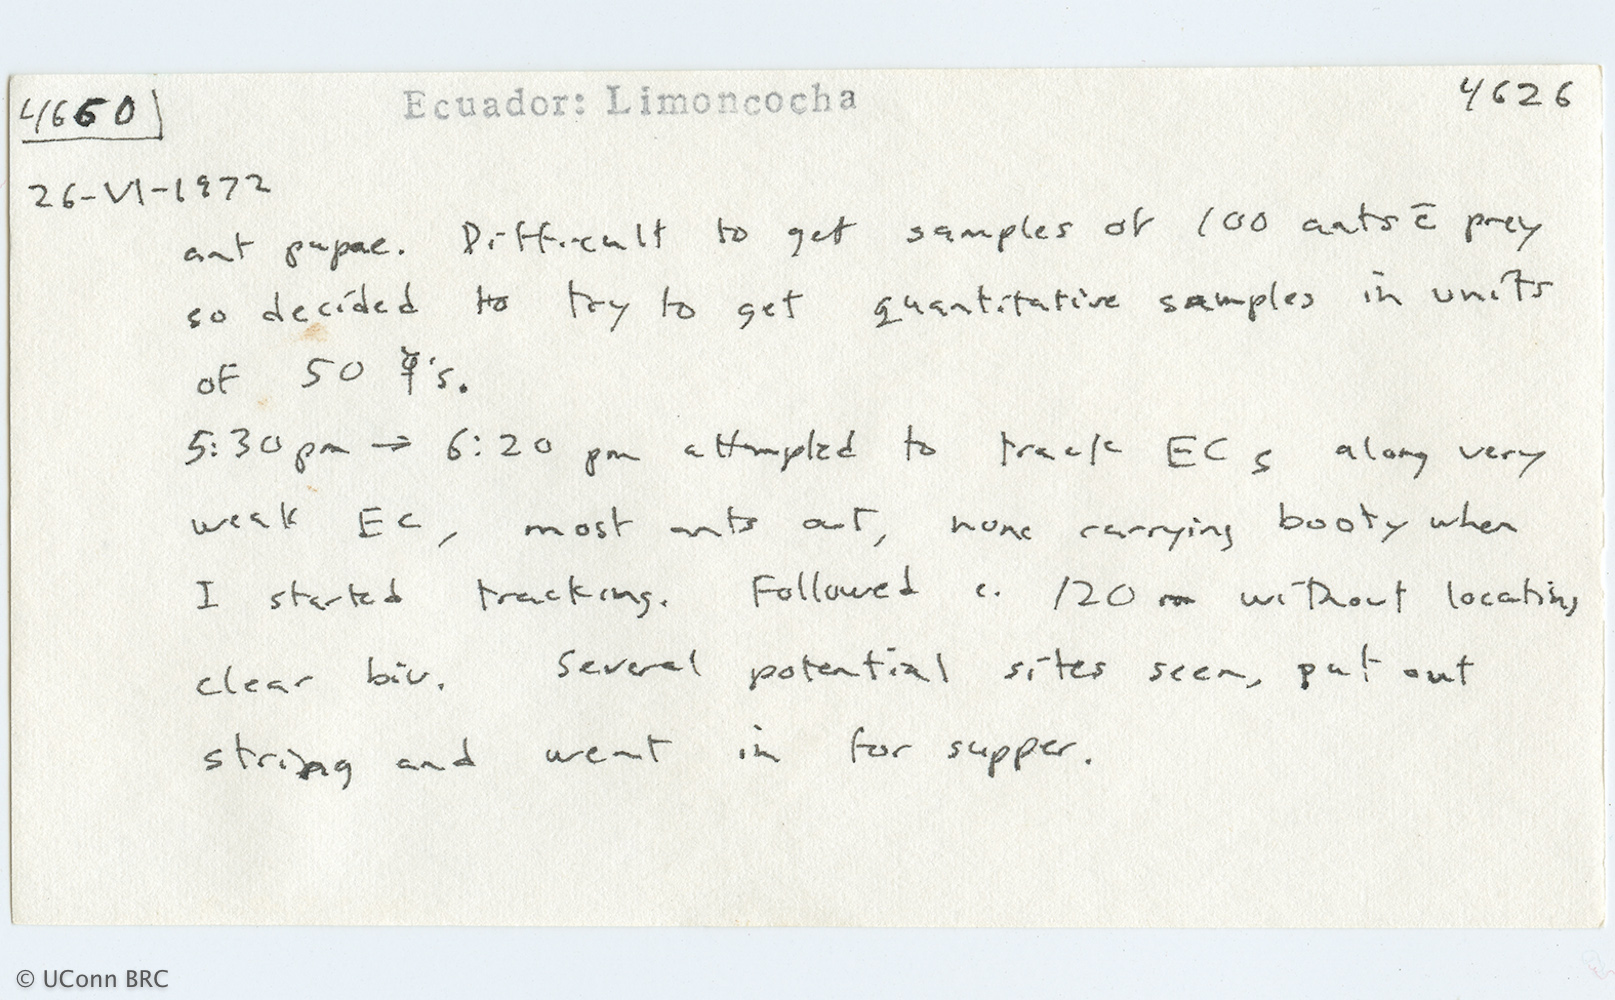 4660
Ecuador: Limoncocha
4626
26-VI-1972
ant pupae. Difficult to get samples of 100 ants c̄ prey
so decided to try to get quantitative samples in units
of 50 ☿'s.
5:30 pm → 6:20 pm attempted to track ECs along very
weak EC, most ants out, none carrying booty when
I started tracking. Followed c. 120 m without locating
clear biv. Several potential sites seen, put out
string and went in for supper.
© UConn BRC